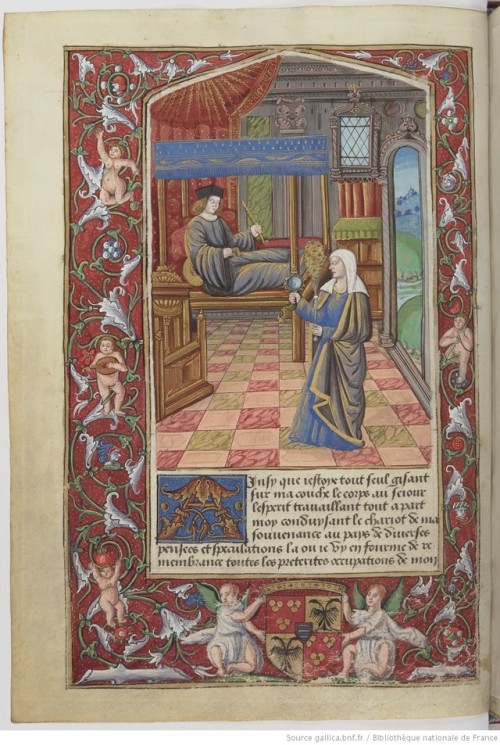 Ainsy que iestoye tout seul gisant
sur ma couche le corps au seiour
lesperit travaillant tout a part
moy conduysant le chariot de ma
souvenance au pays de diverses
pensees et speculations la ou ie vy en fourme de re
membrance toutes les preterites occupations de moy
Source gallica.bnf.fr / Bibliothèque nationale de France